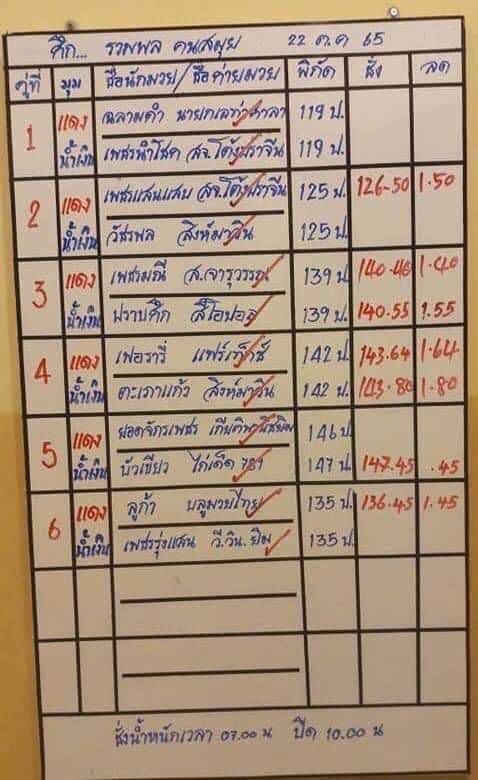 ศึก... รวมพล คนสมุย 22 ต.ค 65
คู่ที่ มุม ชื่อนักมวย/ชื่อค่ายมวย พิกัด ชั่ง ลด
1 แดง ฉลามดำ นายกเอท่าศาลา 119 ป.
น้ำเงิน เพชรนำโชค สจ.โต้งปราจีน 119 ป.
2 แดง เพชรแสนแสบ สจ.โต้งปราจีน 125 ป. 126.50 1.50
น้ำเงิน วัชรพล สิงห์มาวิน 125 ป.
3 แดง เพชรมณี ส.จารุวรรณ 139 ป. 140.40 1.40
น้ำเงิน ปราบศึก 139 ป. 140.55 1.55
4 แดง เฟอรารี่ แฟร์เท็กซ์ 142 ป. 143.64 1.64
น้ำเงิน ตะเภาแก้ว สิงห์มาวิน 142 ป. 143.80 1.80
5 แดง ยอดจักรเพชร 146 ป.
น้ำเงิน บัวเขียว ไก่เด็ด 781 147 ป. 147.45 .45
6 แดง ลูก้า บลูมวยไทย 135 ป. 136.45 1.45
น้ำเงิน เพชรรุ่งแสน วี.วิน.ยิม 135 ป.
ชั่งน้ำหนักเวลา 07.00 น ปิด 10.00 น